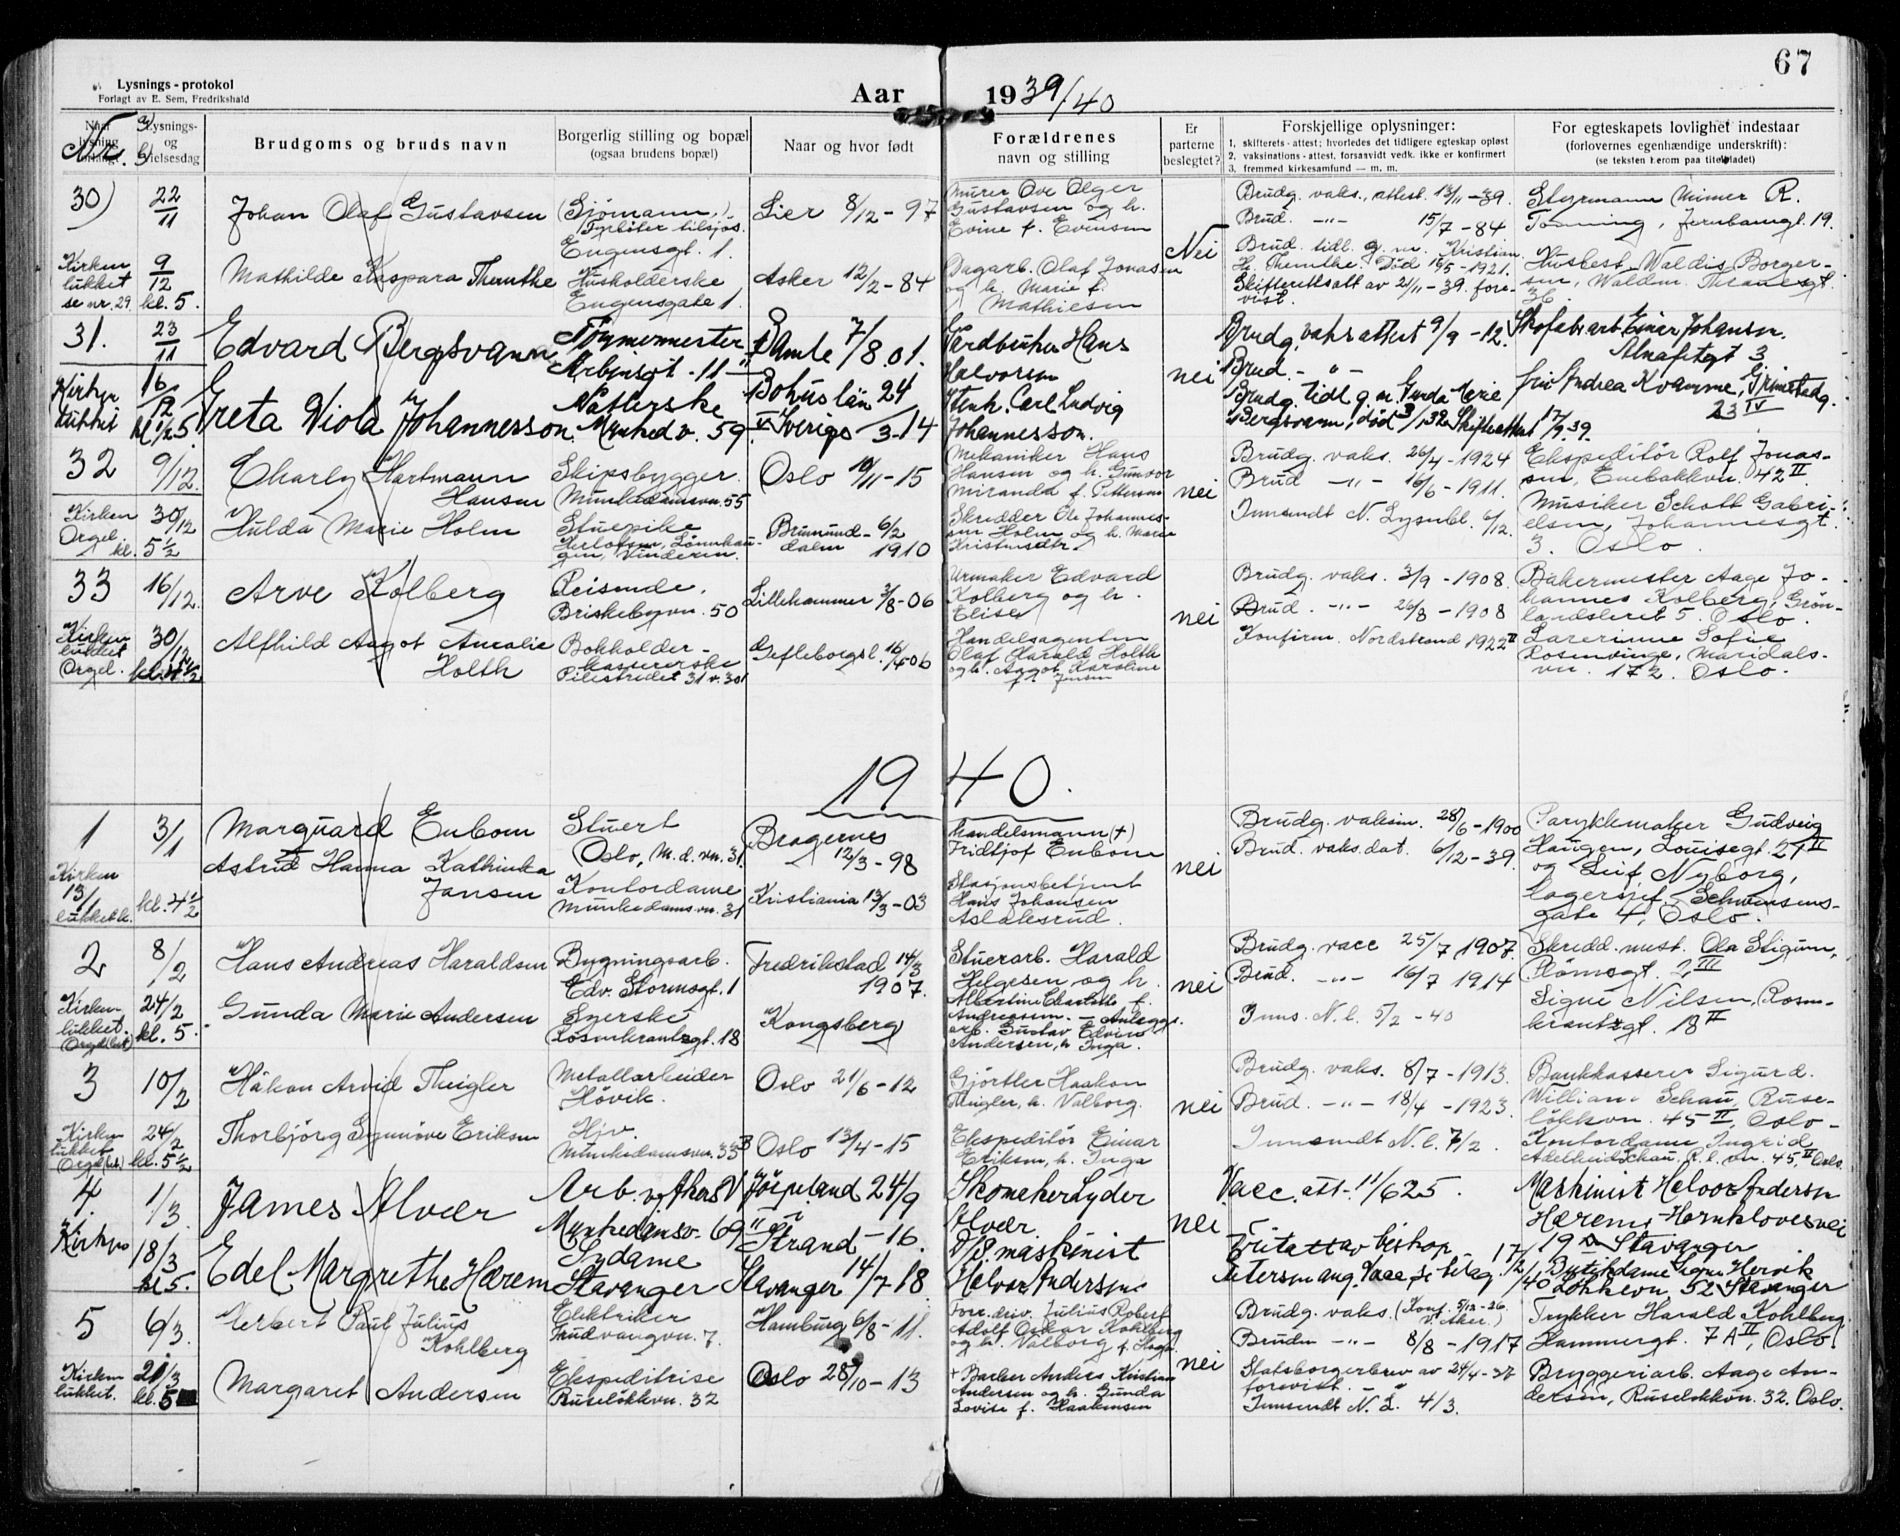 67
Lysnings-protokol
Forlagt av E. Sem, Fredrikshald
Aar 1939/40
Nr.
Lysnings- og
Brudgoms og bruds navn
Borgerlig stilling og bopæl
(ogsaa brudens bopæl)
Naar og hvor født
Forældrenes
navn og stilling
Er
parterne
beslegtet?
Forskjellige oplysninger:
1. skifterets-attest; hvorledes det tidligere egteskap opløst
2. vaksinations-attest, forsaavidt vedk. ikke er konfirmert
3. fremmed kirkesamfund — m. m.
For egteskapets lovlighet indestaar
(forlovernes egenhændige underskrift):
(se teksten herom paa titelbladet)
30) 22/11
Johan Olaf Gustavsen
(Sjømann,)
Eugensgt. 1.
Lier 8/12-97
Murer Ove Olger
Gustavsen og h.
Evine f. Evensen
Nei
Brudg. vaks., attest. 13/11-39.
Brud. -"- 15/7-84
Styrmann Mimer R.
Tønning, Jernbanegt. 19.
Kirken
lukket
se nr. 29
9/12
kl. 5.
Mathilde Kaspara Themthe
Husholderske
Eugensgate 1.
Asker 12/2-84
Dagarb. Olaf Jonasen
og h. Marie f.
Mathiesen
Brud. tidl. g. m. Kristian
H. Themthe. Død 16/5-1921.
Skifterettsatt av 21/11-39. fore-
vist.
Husbest. Waldis Borger-
sen, Waldm. Thranesgt.
36.
31. 23/11
Edvard Bergsvann
Arbinsgt. 11
Bamle 7/8.01.
Hans
Halvorsen
nei
Brudg. vaksattest 9/9-12.
Brud. - " -
Skofabr.arb. Einar Johansen.
Almafetgt 3
Kirken
lukket
16/12
kl 5.
Greta Viola Johannesson
Munked.v. 59.
Bohuslän 24
Sverige 3-14
Stenh. Carl Ludvig
Johannesson.
Brudg. tidl g. m. Gunda Marie
Bergsvann, død 3/1 32 Skifteattest 17/9.39.
frk Andrea Kvamme, Grimstadg.
23 IV
32 9/12.
Charly Hartmann
Hansen
Skipsbygger.
Munkedamsvn. 55
Oslo 19/11-15
Mekaniker Hans
Hansen og h. Gunvor
Miranda f. Pettersen
nei
Brudg. vaks. 26/4-1924
Brud -"- 16/6-1911.
Innsendt N. Lysnbl. 6/12.
Ekspeditør Rolf Jonas-
sen, Enebakkvn. 42 II
Kirken
Orgel
30/12
kl. 5 1/2
Hulda Marie Holm
Stuepike
Brumund-
dalen 6/2
1910
Skredder Ole Johannes-
sen Holm og h. Marie
Kristensdtr.
Musiker Schott Gabri-
elsen, Johannesgt.
3. Oslo.
33 16/12.
Arve Kolberg
Reisende,
Briskebyvn. 50
Lillehammer 3/8-06
Urmaker Edvard
Kolberg og h.
Elise
nei
Brudg. vaks. 3/9-1908.
Brud. -"- 26/8-1908
Konfirm. Nordstrand 1922
Bakermester Aage Jo-
hannes Kolberg, Grøn-
landsleret 5. Oslo.
Kirken
lukket
Orgel.
30/12
Alfhild Aagot Amalie
Holth
Bokholder-
kassererske
Pilestredet 31 v. 301
Gefleborgsl.
Handelsagenten
Olaf Harald Holth
og h. Aagot Karoline
f. Jensen
Lærerinne Sofie
Rosenvinge, Maridals-
vn. 172. Oslo.
1940.
1 3/1
Marquard Enbom
Stuert
Oslo, M.d.vn. 31.
Bragernes
12/3-98
Handelsmann (+)
Fridtjof Enbom
nei
Brudg. vaksin. 28/6-1900
Brud. vaks. dat. 6/12-39.
Parykkmaker Gudveig
Haugen, Louisegt. 21 II
og Leif Nyborg,
lagersjef, Schwensens-
gate 4, Oslo.
Kirken
13/1
kl. 4 1/2
Astrid Hanna Kathinka
Jansen
Kontordame
Munkedamsvn. 31
Kristiania 13/3-03
Stasjonsbetjent
Hans Johansen
Aslaksrud.
2 8/2
Hans Andreas Haraldsen
Bygningsarb.
Edv. Stormsgt. 1
Fredrikstad 14/3
1907.
Stuerarb. Harald
Helgesen og h.
Albertine Charlotte f.
Andreasen. - Anleggs-
nei
Brudg. vacc 25/7 1907.
Brud. -"- 16/7 1914
Inns. N. l. 5/2-40
Skredd. mest. Ola Stigum,
2, III
Kirken
lukket.
24/2
kl. 5.
Gunda Marie Andersen
Syerske
Rosenkrantzgt. 18
Kongsberg
arb. Gustav Edvin
Andersen, h. Inga.
Signe Nilsen, Rosen-
krantzgt. 18 II
3 10/2
Håkon Arvid Theigler
Metallarbeider
Høvik.
Oslo 21/6-12
Gjørtler Haakon
Theigler, h. Valborg.
nei
Brudg. vaks. 8/7-1913.
Brud. -"- 18/4-1923.
Innsendt N. l. 7/2.
Bankkasserer Sigurd
William Schau, Ruse-
løkkvn. 45 II, Oslo-
Kirken
lukket
24/2
kl. 5 1/2
Thorbjörg Synnöve Eriksen
Hjv.
Munkedamsvn. 33 B
Oslo 13/4-15
Ekspeditör Einar
Eriksen, h. Inga
Kontordame Ingrid
Adelheid Schau, R.l. vn. 45, II Oslo.
4. 1/3
James Alvær
Arb. v/Akers V
Munkedamsv. 69
Jørpeland 24/9
Strand -16.
Skomaker Lyder
Alvær
nei
Vacc. att. 11/6 25.
Maskinist Halvor Andersen
Hærem, Hornklovesvei
19 Stavanger
Kirken
18/3
kl 5.
Edel Margrethe Hærem
Sydame
Stavanger
Stavanger 14/7 18.
D/S. maskinist
Halvor Andersen
Fritatt av biskop
Petersen ang. Vacc se bilag. 17/2/40
52 Stavanger
5 6/3.
Herbert Paul Julius
Kohlberg
Elektriker
Trudvangvn. 7.
Hamburg 6/8-11.
Forr. driv. Julius Robert
Adolf Oskar Kohlberg
og h. Valborg f.
nei
Brudg. vaks. (Konf. 5/12-26.
V. Aker.)
Bruden -"- 8/8-1917
Trykker Harald Kohlberg
Hammergt. 7 A II, Oslo
Kirken
lukket.
21/3
kl. 5
Margaret Andersen
Ekspeditrise
Ruseløkkvn. 32
Oslo 28/10-13
+ Barber Anders Kristian
Andersen og h. Gunda
Lovise f. Haakensen
Statsborgerbrev av 24/4-37
forevist.
Innsendt N. L. 4/3.
Bryggeriarb. Aage An-
dersen, Ruseløkkvn. 32. Oslo.